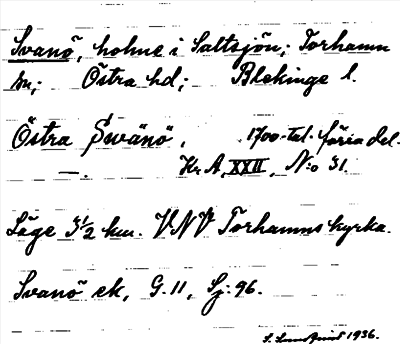 Svanö, holme i Saltsjön; Torhamn
sn; Östra hd; Blekinge l.
Östra Swänö, 1700-tal. förra del.
—. Kr A, XXII, N:o 31.
Läge 3½ km. VNV Torhamns kyrka.
Svanö ek, G. 11, Sj: 96.
S. 1936.